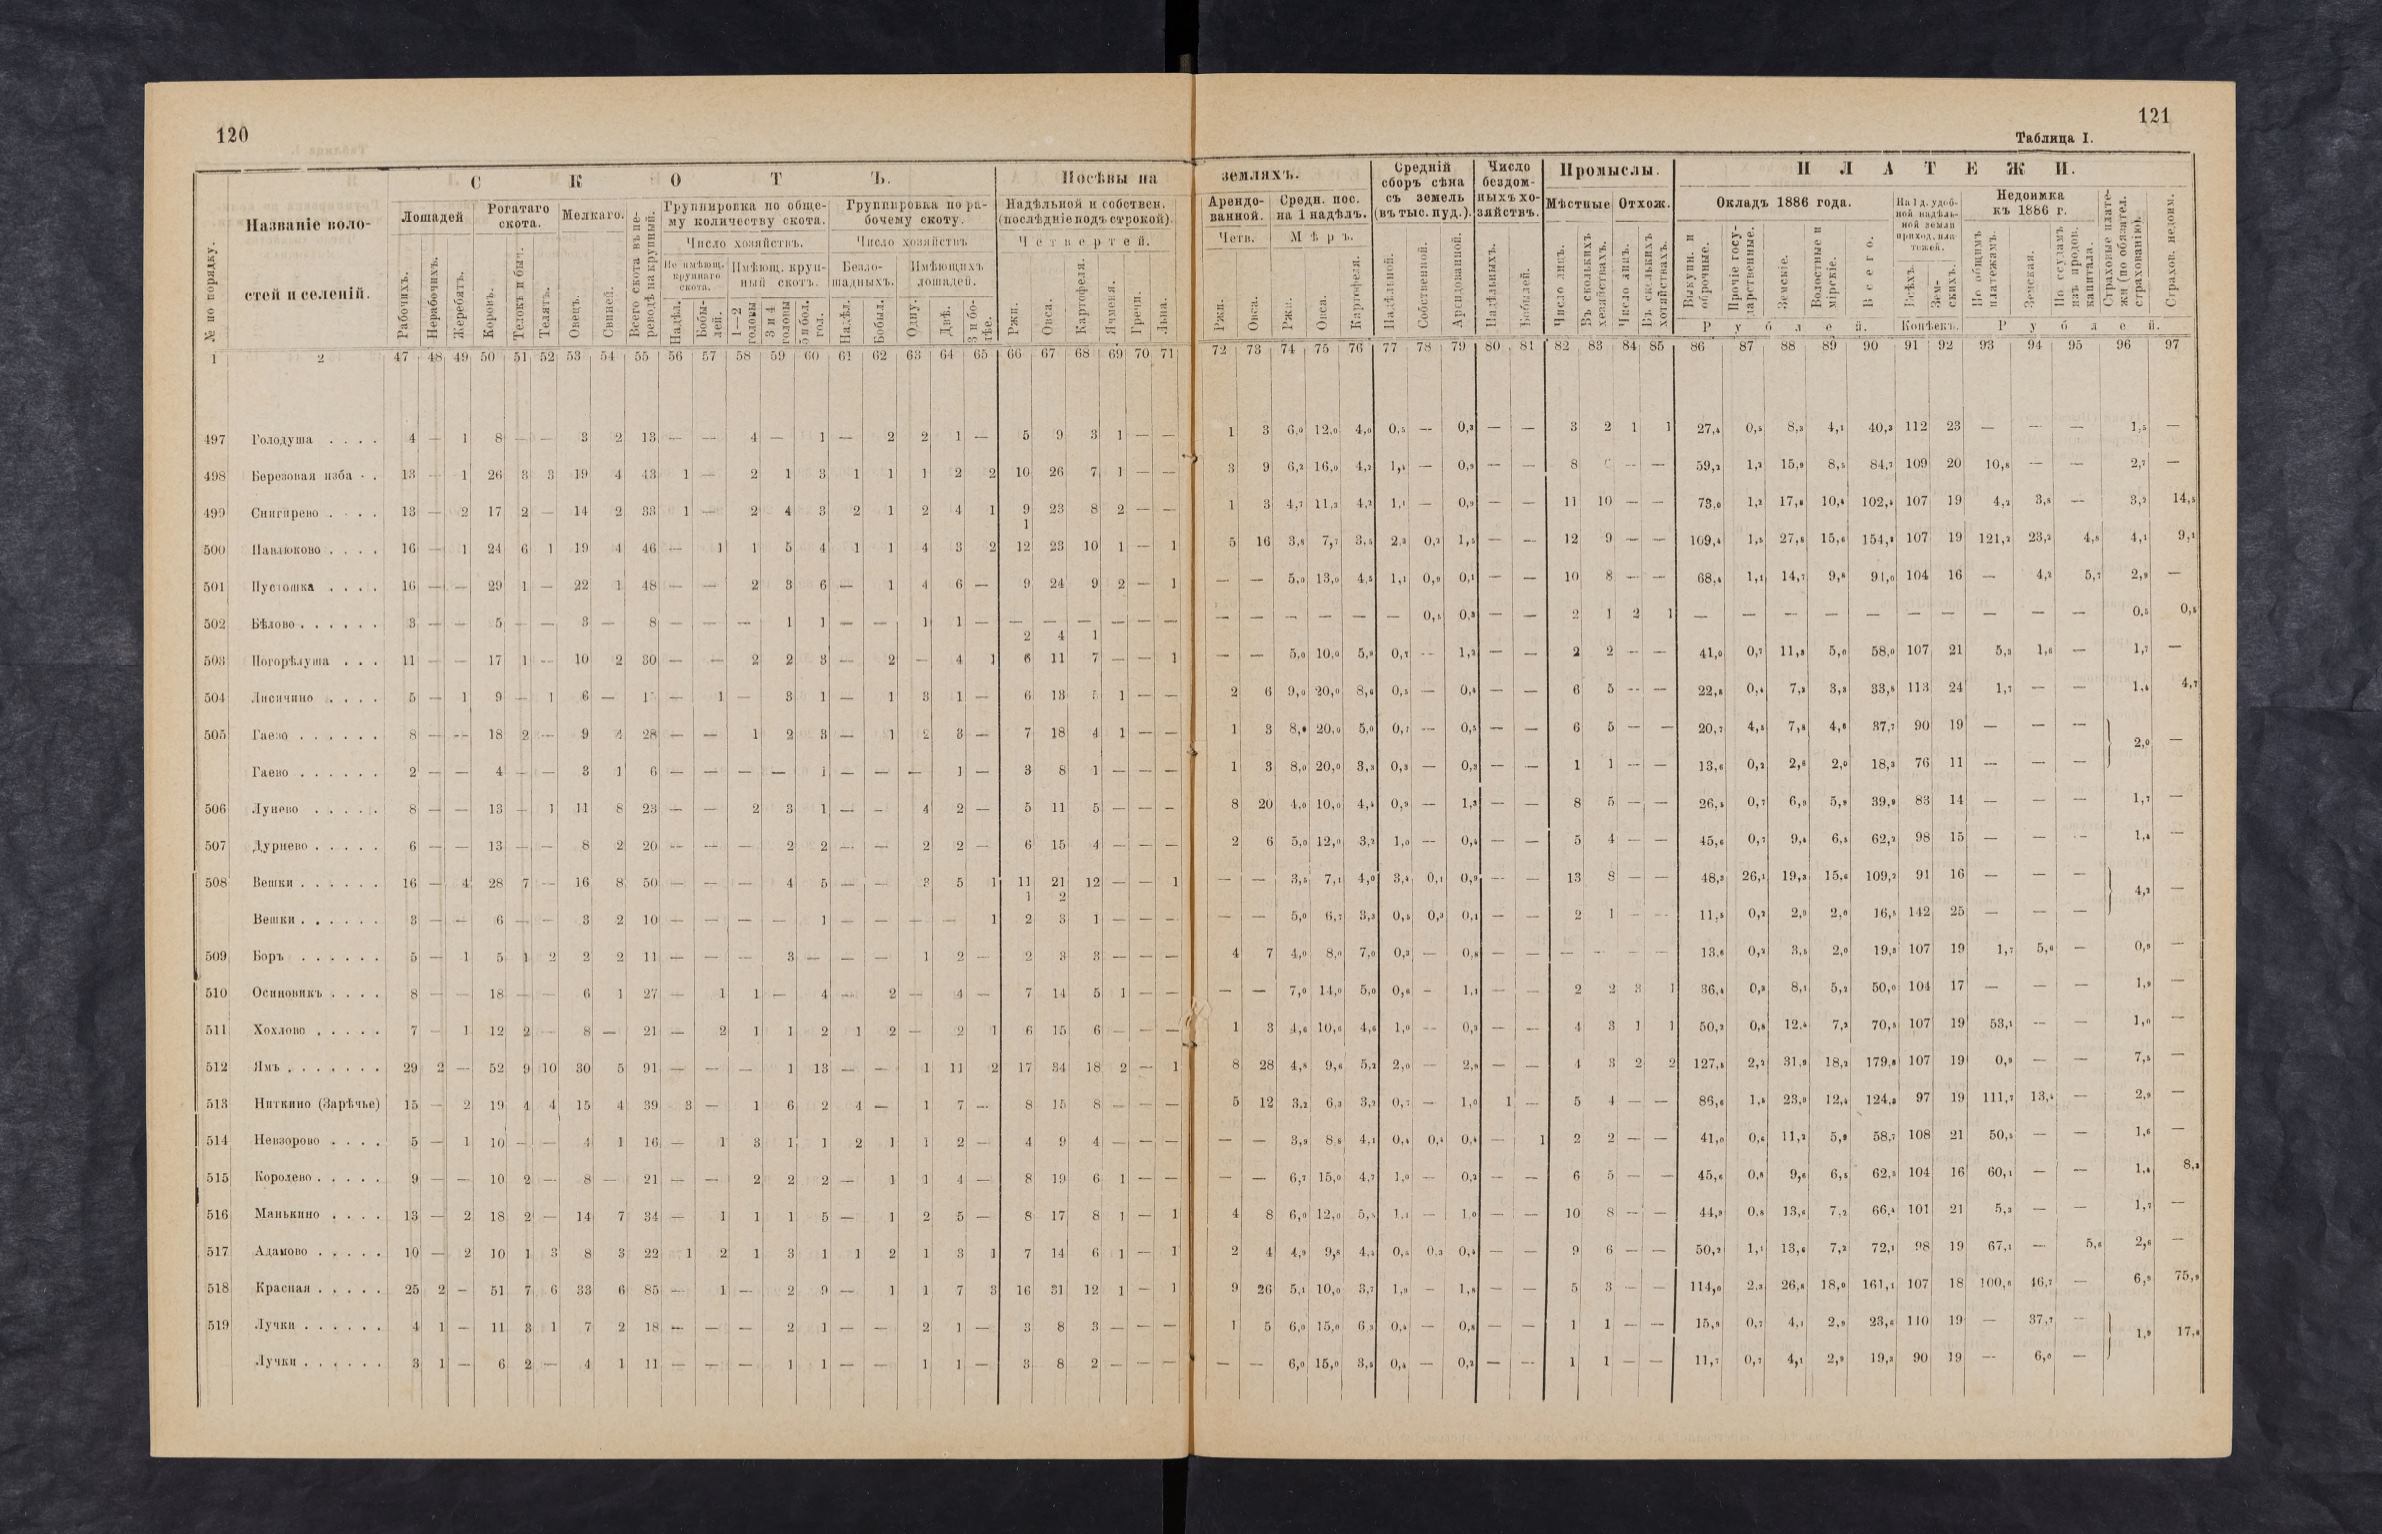 120
121
Таблица I.
№ по порядку.
Названіе воло-
стей и селеній.
С К О Т Ъ.
Лошадей
Рогатаго
скота.
Мелкаго.
Рабочихъ.
Нерабочихъ.
Жеребятъ.
Коровъ.
Телокъ и быч.
Телятъ.
Овецъ.
Свиней.
Всего скота въ пе-
реводѣ на крупный.
Группировка по обще-
му количеству скота.
Число хозяйствъ.
Не имѣющ.
крупнаго
скота.
Имѣющ. круп-
ный скотъ.
Надѣл.
Бобы-
лей.
1—2
головы
3 и 4
головы
5 и бол.
гол.
Группировка по ра-
бочему скоту.
Число хозяйствъ
Безло-
шадныхъ.
Имѣющихъ
лошадей.
Надѣл.
Бобыл.
Одну.
Двѣ.
3 и бо-
лѣе.
Посѣвы на
земляхъ.
Надѣльной и собствен.
(послѣдніе подъ строкой).
Четвертей.
Ржи.
Овса.
Картофеля.
Ячменя.
Гречи.
Льна.
Арендо-
ванной.
Четв.
Ржи.
Овса.
Средн. пос.
на 1 надѣлъ.
Мѣръ.
Ржи.
Овса.
Картофеля.
Средній
сборъ сѣна
съ земель
(въ тыс. пуд.).
Надѣльной.
Собственной.
Арендованной.
Число
бездом-
ныхъ хо-
зяйствъ.
Надѣльныхъ.
Бобылей.
Промыслы.
Мѣстные
Отхож.
Число лицъ.
Въ сколькихъ
хозяйствахъ.
Число лицъ.
Въ сколькихъ
хозяйствахъ.
П Л А Т Е Ж И.
Окладъ 1886 года.
Выкупн. и
оброчные.
Прочіе госу-
дарственные.
Земскіе.
Волостные и
мірскіе.
Всего.
Рублей.
На 1 д. удоб-
ной надѣль-
ной земли
приход. пла-
тежей.
Всѣхъ.
Зем-
скихъ.
Копѣекъ.
Недоимка
къ 1886 г.
По общимъ
платежамъ.
Земская.
По ссудамъ
изъ продов.
капитала.
Страховые плате-
жи (по обязател.
страхованію).
Страхов. недоим.
Рублей.
1 2 47 48 49 50 51 52 53 54 55 56 57 58 59 60 61 62 63 64 65 66 67 68 69 70 71 72 73 74 75 76 77 78 79 80 81 82 83 84 85 86 87 88 89 90 91 92 93 94 95 96 97
497 Голодуша . . . . 4 — 1 8 — — 3 2 13 — — 4 — 1 — 2 2 1 — 5 9 3 1 — — 1 3 6,0 12,0 4,0 0,5 — 0,3 — — 3 2 1 1 27,4 0,5 8,3 4,1 40,3 112 23 — — — 1,5 —
498 Березовая изба . . 13 — 1 26 3 3 19 4 43 1 — 2 1 3 1 1 1 2 2 10 26 7 1 — — 3 9 6,2 16,0 4,2 1,4 — 0,9 — — 8 — — 59,2 1,3 15,9 8,5 84,7 109 20 10,8 — — 2,7 —
499 Снигирево . . . . 13 — 2 17 2 — 14 2 33 1 — 2 4 3 2 1 2 4 1 9 23 8 2 — — 1 3 4,7 11,3 4,2 1,1 — 0,9 — — 11 10 — — 73,0 1,2 17,8 10,4 102,4 107 19 4,2 3,8 — 3,2 14,5
1
500 Павлюково . . . . 16 — 1 24 6 1 19 4 46 — 1 1 5 4 1 1 4 3 2 12 23 10 1 — 1 5 16 3,8 7,7 3,5 2,3 0,2 1,5 — — 12 9 — — 109,4 1,5 27,8 15,6 154,3 107 19 121,2 23,2 4,8 4,1 9,1
501 Пустошка . . . . 16 — — 29 1 — 22 1 48 — — 2 3 6 — 1 4 6 — 9 24 9 2 — 1 — — 5,0 13,0 4,5 1,1 0,9 0,1 — — 10 8 — — 68,4 1,1 14,7 9,8 91,0 104 16 — 4,2 5,7 2,9 —
502 Бѣлово . . . . . . 3 — — 5 — — 3 — 8 — — — 1 1 — — 1 1 — — — — — — — — — — — — — 0,5 0,3 — — 2 1 2 1 — — — — — — — — — — 0,5 0,5
2 4 1
503 Погорѣлуша . . . 11 — — 17 1 — 10 2 30 — — 2 2 3 — 2 — 4 1 6 11 7 — — 1 — — 5,0 10,0 5,9 0,7 — 1,3 — — 2 2 — — 41,0 0,7 11,3 5,0 58,0 107 21 5,3 1,6 — 1,7 —
504 Лисичино . . . . 5 — 1 9 — 1 6 — — 1 — 3 1 — 1 3 1 — 6 13 5 1 — — 2 6 9,0 20,0 8,6 0,5 — 0,4 — — 6 5 — — 22,8 0,4 7,3 3,3 33,8 113 24 1,7 — — 1,4 4,7
505 Гаево . . . . . . 8 — — 18 2 — 9 4 28 — — 1 2 3 — 1 2 3 — 7 18 4 1 — — 1 3 8,0 20,0 5,0 0,7 — 0,5 — — 6 5 — — 20,7 4,5 7,8 4,6 37,7 90 19 — — — 2,0 —
Гаево . . . . . . 2 — — 4 — — 3 1 6 — — — — 1 — — — 1 — 3 8 1 — — — 1 3 8,0 20,0 3,3 0,3 — 0,3 — — 1 1 — — 13,6 0,2 2,6 2,0 18,3 76 11 — — —
506 Лунево . . . . . 8 — — 13 — 1 11 8 23 — — 2 3 1 — — 4 2 — 5 11 5 — — — 8 20 4,0 10,0 4,4 0,9 — 1,3 — — 8 5 — — 26,5 0,7 6,9 5,9 39,9 83 14 — — — 1,7 —
507 Дурнево . . . . . 6 — — 13 — — 8 2 20 — — — 2 2 — — 2 2 — 6 15 4 — — — 2 6 5,0 12,0 3,2 1,0 — 0,4 — — 5 4 — — 45,6 0,7 9,4 6,5 62,2 98 15 — — — 1,4 —
508 Вешки . . . . . . 16 — 4 28 7 — 16 8 50 — — — 4 5 — — 3 5 1 11 21 12 — — 1 — — 3,5 7,1 4,0 3,4 0,1 0,9 — — 13 8 — — 48,3 26,1 19,3 15,6 109,2 91 16 — — — 4,3 —
1 2
Вешки . . . . . . 3 — — 6 — — 3 2 10 — — — — 1 — — — — 1 2 3 1 — — — — — 5,0 6,7 3,3 0,5 0,3 0,1 — — 2 1 — — 11,5 0,2 2,9 2,0 16,5 142 25 — — —
509 Боръ . . . . . . 5 — 1 5 1 2 2 2 11 — — — 3 — — — 1 2 — 2 3 3 — — — 4 7 4,0 8,0 7,0 0,3 — 0,8 — — — — — — 13,6 0,2 3,5 2,0 19,3 107 19 1,7 5,6 — 0,9 —
510 Осиновикъ . . . . 8 — — 18 — — 6 1 27 — 1 1 — 4 — 2 — 4 — 7 14 5 1 — — — — 7,0 14,0 5,0 0,6 — 1,1 — — 2 2 3 1 36,4 0,3 8,1 5,2 50,0 104 17 — — — 1,9 —
511 Хохлово . . . . . 7 — 1 12 2 — 8 — 21 — 2 1 1 2 1 2 — 2 1 6 15 6 — — — 1 3 4,6 10,6 4,6 1,0 — 0,3 — — 4 3 1 1 50,2 0,8 12,4 7,2 70,5 107 19 53,1 — — 1,0 —
512 Ямъ . . . . . . . 29 2 — 52 9 10 30 5 91 — — — 1 13 — — 1 11 2 17 34 18 2 — 1 8 28 4,8 9,6 5,2 2,0 — 2,9 — — 4 3 2 2 127,5 2,2 31,9 18,2 179,8 107 19 0,9 — — 7,5 —
513 Ниткино (Зарѣчье) 15 — 2 19 4 4 15 4 39 3 — 1 6 2 4 — 1 7 — 8 15 8 — — — 5 12 3,2 6,3 3,2 0,7 — 1,0 1 — 5 4 — — 86,6 1,8 23,0 12,4 124,3 97 19 111,7 13,4 — 2,9 —
514 Невзорово . . . . 5 — 1 10 — — 4 1 16 — 1 3 1 1 2 1 1 2 — 4 9 4 — — — — — 3,9 8,8 4,1 0,4 0,4 0,4 — 1 2 2 — — 41,0 0,6 11,2 5,9 58,7 108 21 50,5 — — 1,6 —
515 Королево . . . . . 9 — — 10 2 — 8 — 21 — — 2 2 2 — 1 1 4 — 8 19 6 1 — — — — 6,7 15,0 4,7 1,0 — 0,2 — — 6 5 — — 45,6 0,8 9,6 6,5 62,5 104 16 60,1 — — 1,4 8,3
516 Манькино . . . . 13 — 2 18 2 — 14 7 34 — 1 1 1 5 — 1 2 5 — 8 17 8 1 — 1 4 8 6,0 12,0 1,1 — 1,0 — — 10 8 — — 44,9 0,8 13,6 7,2 66,4 101 21 5,3 — — 1,7 —
517 Адамово . . . . . 10 — 2 10 1 3 8 3 22 1 2 1 3 1 1 2 1 3 1 7 14 6 1 — 1 2 4 4,9 9,8 4,4 0,5 0,3 0,4 — — 9 6 — — 50,2 1,1 13,6 7,2 72,1 98 19 67,1 — 5,6 2,6 —
518 Красная . . . . . 25 2 — 51 7 6 33 6 85 — 1 — 2 9 — 1 1 7 3 16 31 12 1 — 1 9 26 5,1 10,0 3,7 1,9 — 1,8 — — 5 3 — — 114,0 2,3 26,8 18,0 161,1 107 18 100,6 46,7 — 6,8 75,9
519 Лучки . . . . . . 4 1 — 11 3 1 7 2 18 — — — 2 1 — — 2 1 — 3 8 3 — — — 1 5 6,0 15,0 6,3 0,4 — 0,8 — — 1 1 — — 15,9 0,7 4,1 2,9 23,6 110 19 — 37,7 — 1,9 17,8
Лучки . . . . . . 3 1 — 6 2 — 4 1 11 — — — 1 1 — — 1 1 — 3 8 2 — — — — — 6,0 15,0 3,5 0,4 — 0,2 — — 1 1 — — 11,7 0,7 4,1 2,9 19,3 90 19 — 6,0 —